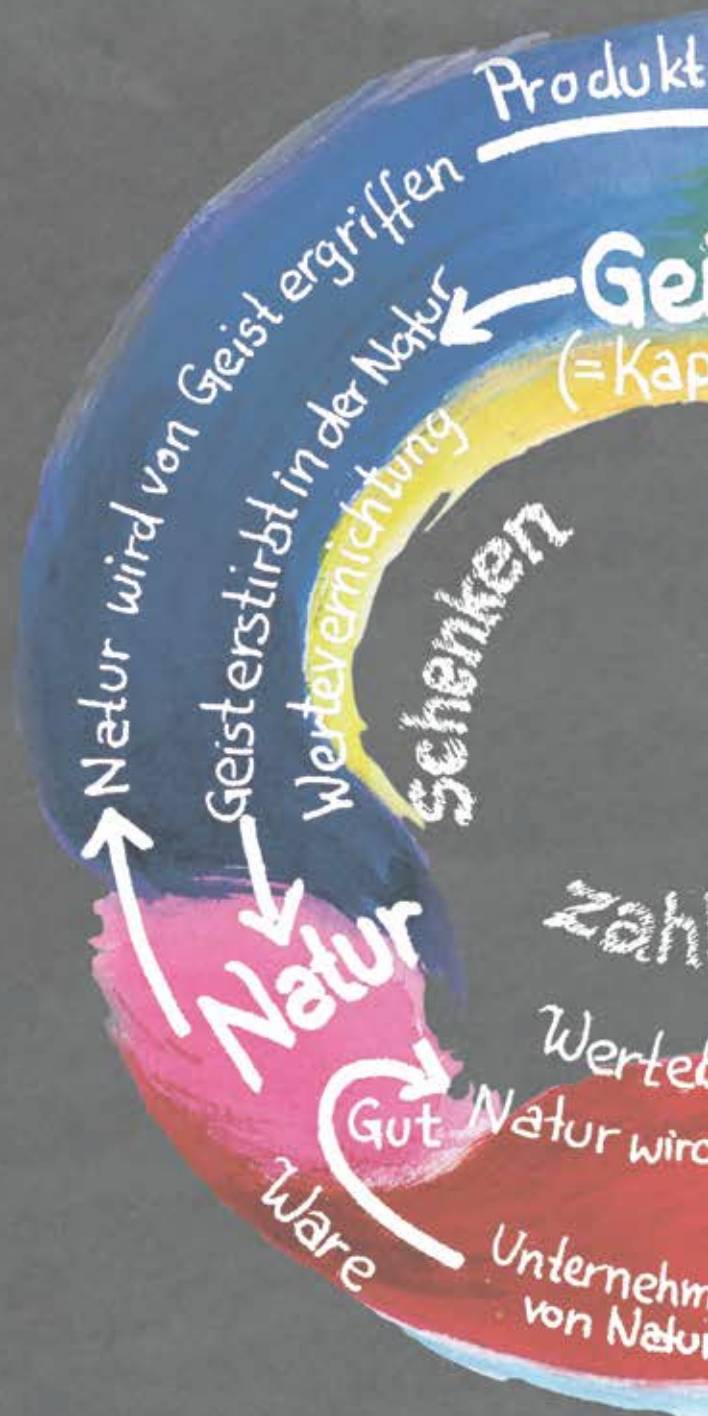 Produkt
Natur wird von Geist ergriffen
Gei
(=Kap
Geist erstirbt in der Natur
Wertevernichtung
Schenken
Natur
zahl
Werteb
Gut
Natur wird
Ware
Unternehm
von Natur